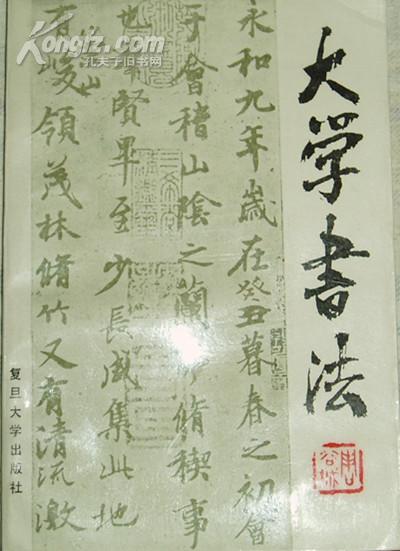 Kongfz.com
孔夫子旧书网
大学書法
周谷城
永和九年歲在癸丑暮春之初會
于會稽山陰之蘭亭脩稧事
也羣賢畢至少長咸集此地
峻領茂林脩竹又有清流激
复旦大学出版社